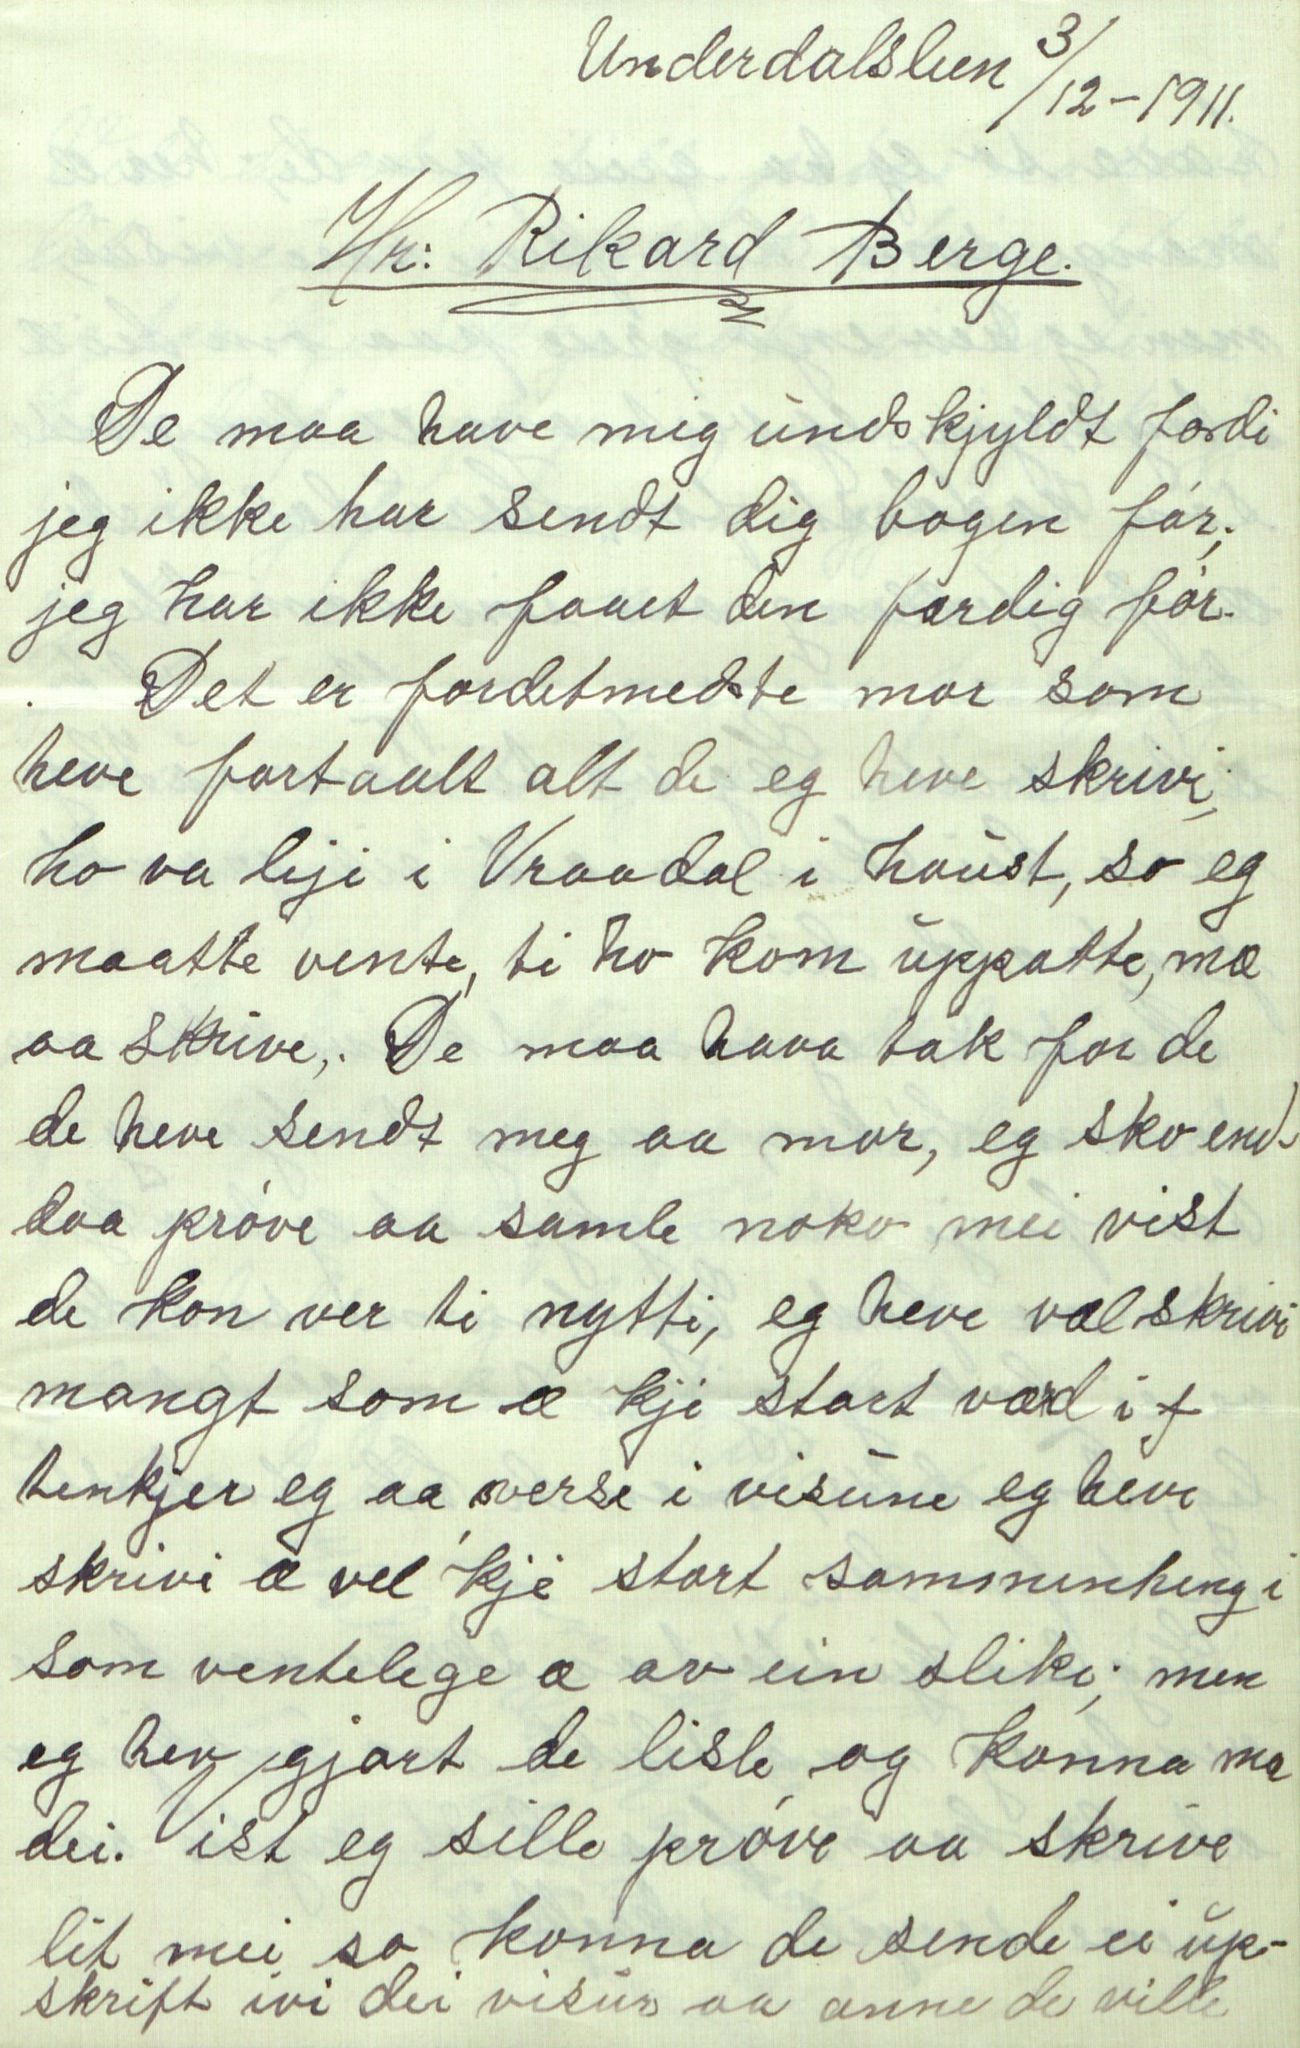 Underdalslien 3/12-1911.
Hr: Rikard Berge.
De maa have mig undskjyldt fordi
jeg ikke har sendt dig bogen før,
jeg har ikke faaet den færdig før.
Det er fordetmedste mor som
heve fortaalt alt de eg heve skrivi,
ho va liji i Vraadal i haust, so eg
maatte vente, ti ho kom uppatte, mæ
aa skrive,. De maa hava tak for de
de heve sendt meg aa mor, eg sko end-
daa prøve aa samle noko mei vist
de kan ver ti nytti, eg heve vael skrivi
mangt som æ kji stort værd i
tenkjer eg aa verse i visune eg heve
skrivi æ vel kje stort sammenheng i
som ventelege æ av ein slike; men
eg hev gjort de lisle eg konna mæ
dei. Vist eg sille prøve aa skrive
lit mei so konna de sende ei up-
skrift ivi dei visur aa anne de ville